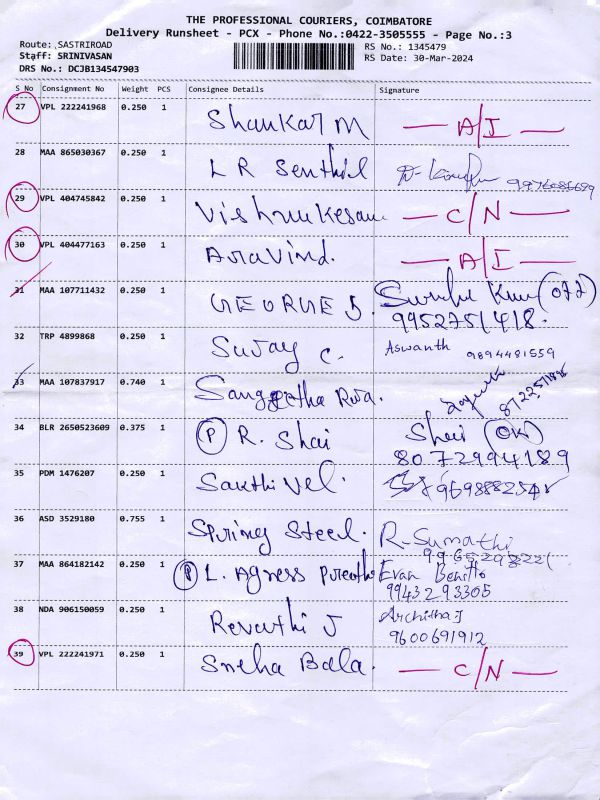 THE PROFESSIONAL COURIERS, COIMBATORE
Delivery Runsheet - PCX - Phone No.:0422-3505555 - Page No.:3
Route: SASTRIROAD
RS No.: 1345479
Staff: SRINIVASAN
RS Date: 30-Mar-2024
DRS No.: DCJB134547903
S No Consignment No Weight PCS Consignee Details Signature
27 VPL 222241968 0.250 1 Shankar M A/I
28 MAA 865030367 0.250 1 L R Senthil 9976086699
29 VPL 404745842 0.250 1 Vishnukesan C/N
30 VPL 404477163 0.250 1 Aravind. A/I
31 MAA 107711432 0.250 1 GEORGE J.
9952751418.
32 TRP 4899868 0.250 1 Sujay C. Aswanth 9894481559
33 MAA 107837917 0.740 1 Sangeetha
34 BLR 2650523609 0.375 1 (P) R. Shai Shai (OK)
8072994189
35 PDM 1476207 0.250 1 Sakthi Vel.
36 ASD 3529180 0.755 1 Spring Steel. R-Sumathi
37 MAA 864182142 0.250 1 (P) L. Agness Evan Benitto
9943293305
38 NDA 906150059 0.250 1 Revathi J Architha J
9600691912
39 VPL 222241971 0.250 1 Sneha Bala. C/N